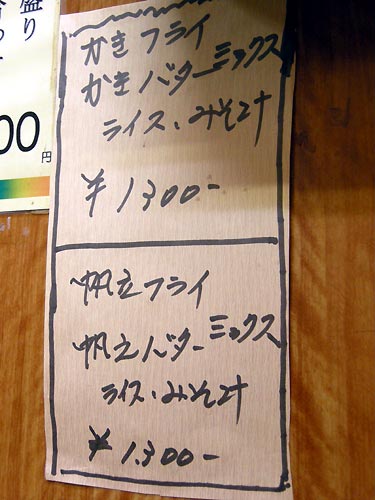 盛り
00円
かきフライ
かきバターミックス
ライス、みそ汁
￥1300-
帆立フライ
帆立バターミックス
ライス・みそ汁
￥1.300-